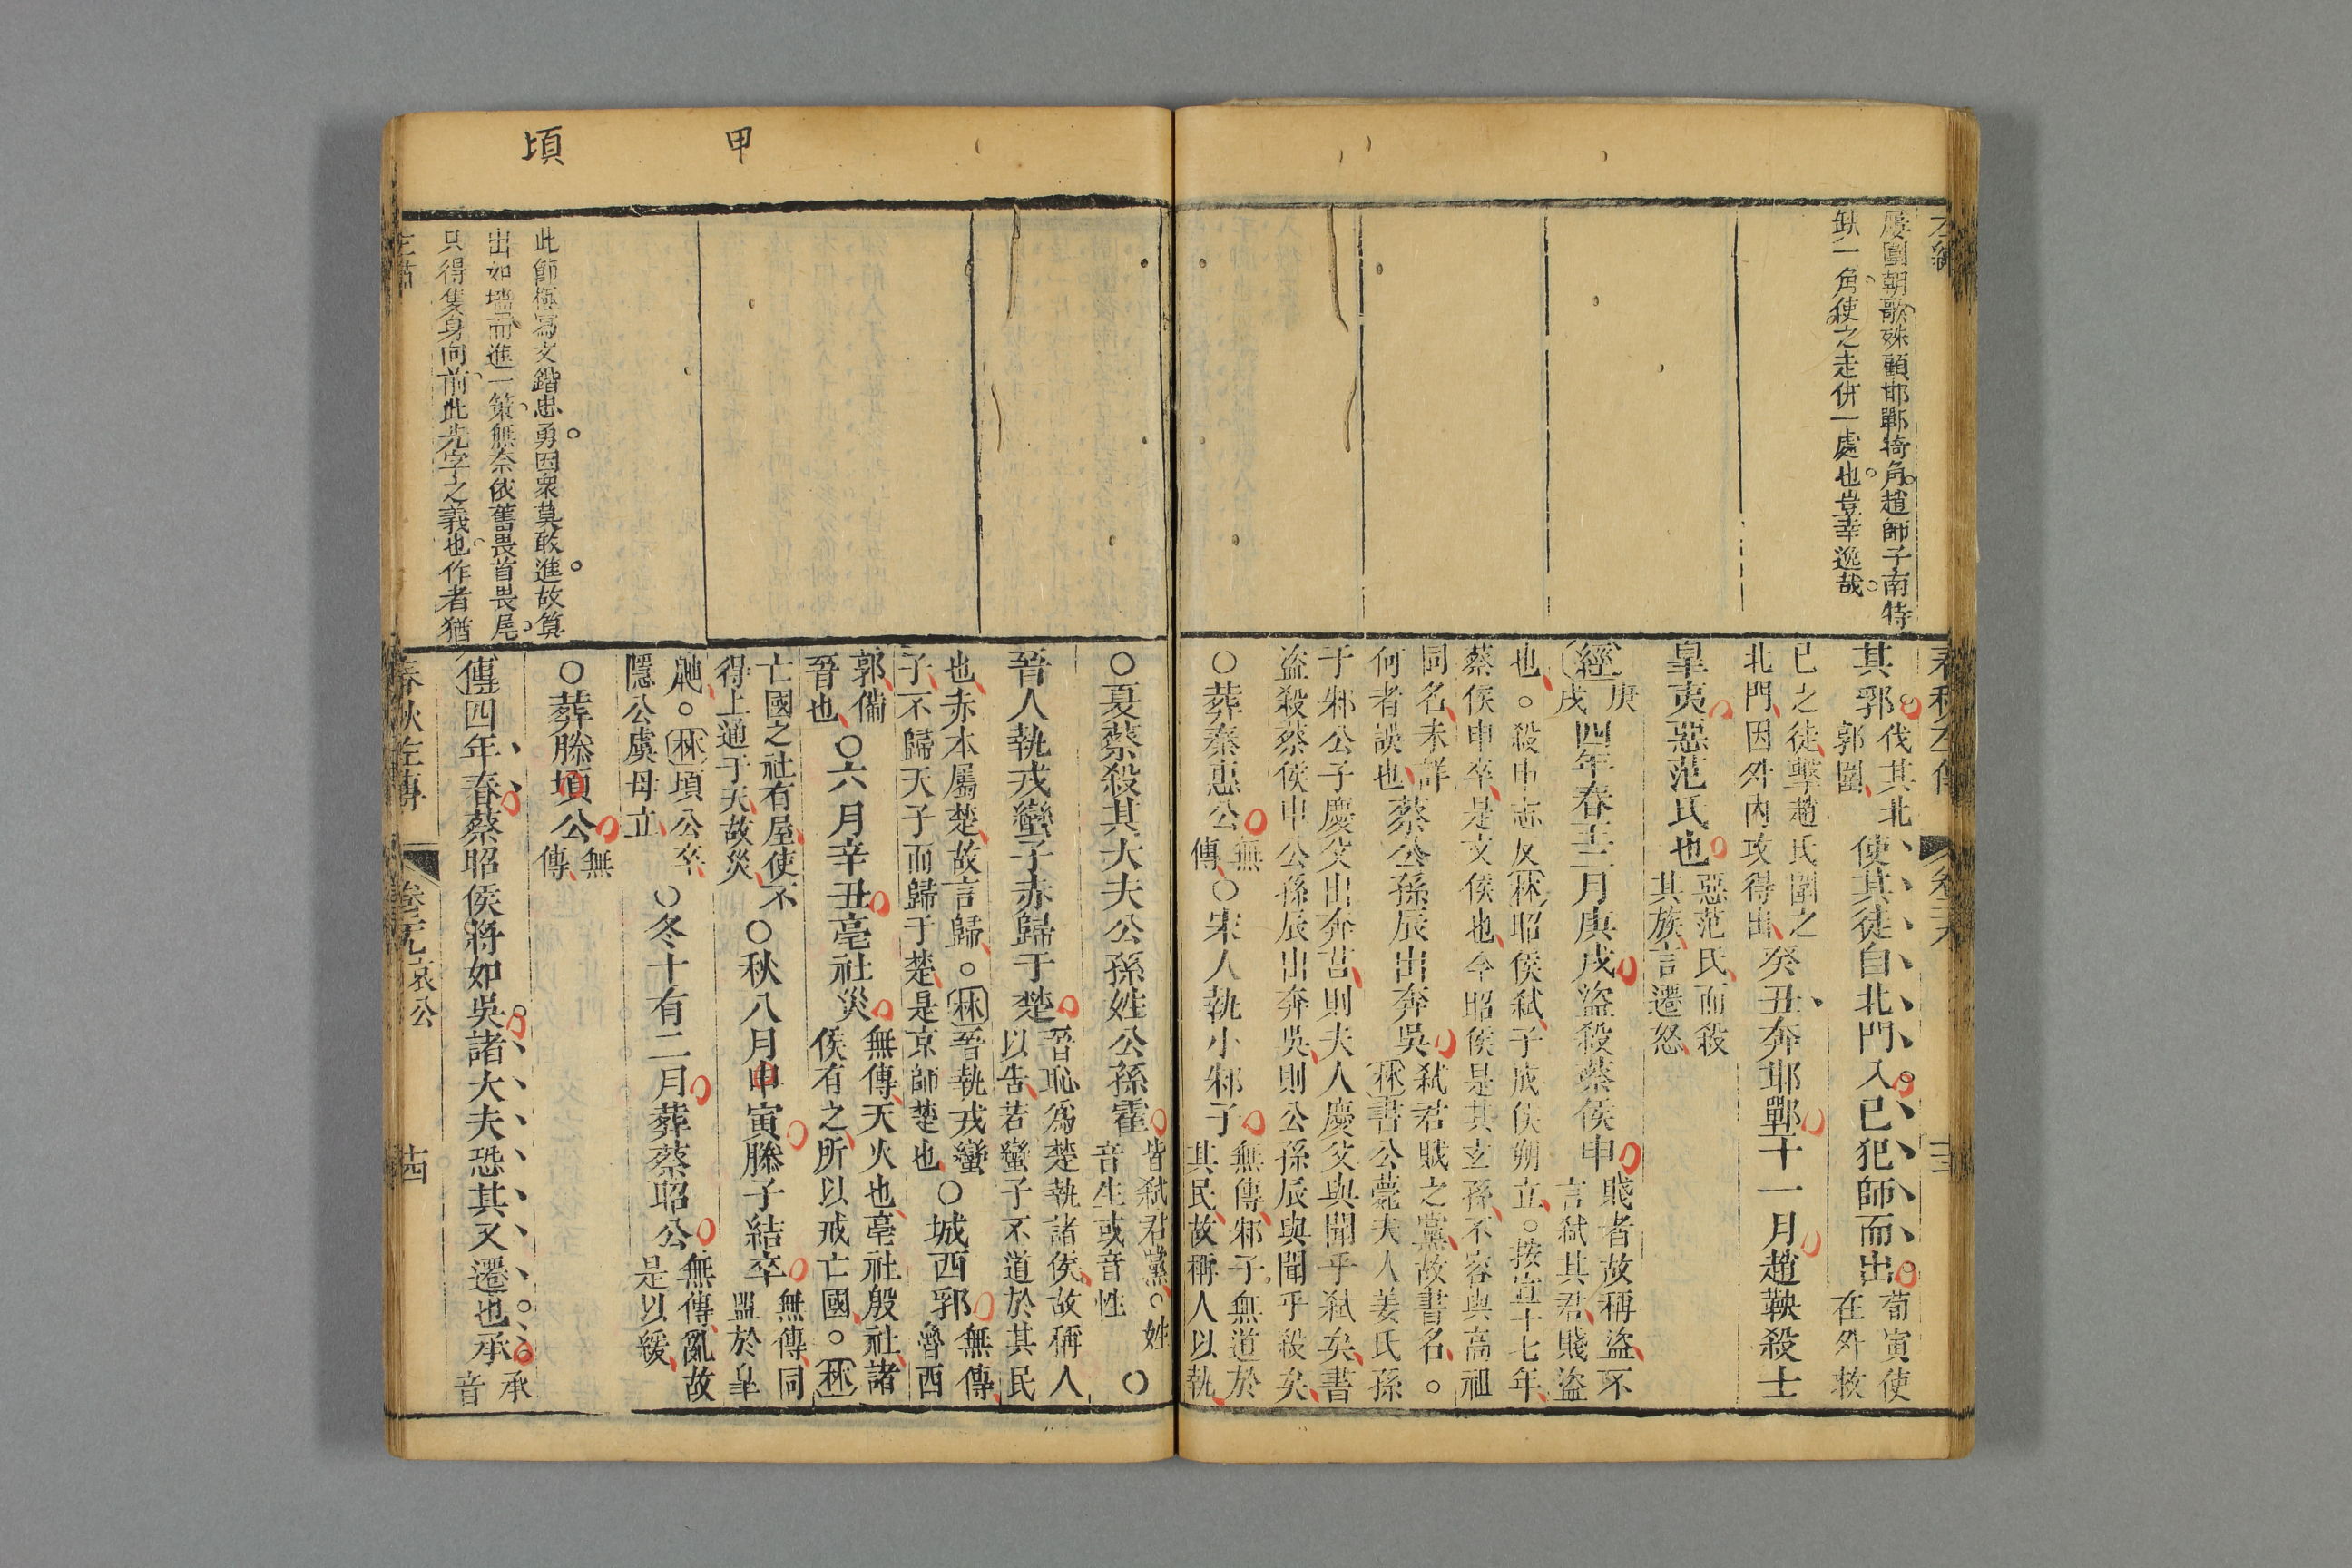 屢圍朝歌殊顧邯鄲犄角趙師子南特
缺一角使之走併一處也豈幸逸哉
其郛伐其北郭圍使其徒自北門入己犯師而出荀寅使在外救
已之徒擊趙氏圍之北門因外內攻得出癸丑奔邯鄲十一月趙鞅殺士
皐夷惡范氏也惡范氏而殺其族言遷怒
經庚戌四年春王二月庚戌盜殺蔡侯申賤者故稱盜不言弑其君賤盜
也○殺申志反林昭侯弑子成侯朔立○按宣十七年蔡侯申卒是文侯也今昭侯是其玄孫不容與高祖
同名未詳何者誤也蔡公孫辰出奔吳弑君賊之黨故書名○林書公薨夫人姜氏孫
于邾公子慶父出奔莒則夫人慶父與聞乎弑矣書盜殺蔡侯申公孫辰出奔吳則公孫辰與聞乎殺矣
○葬秦惠公無傳○宋人執小邾子無傳邾子無道於其民故稱人以執
頃
甲
此節極寫文鍇忠勇因衆莫敢進故算
出如墻而進一策無奈依舊畏首畏尾
只得隻身向前此先字之義也作者猶
○夏蔡殺其大夫公孫姓公孫霍皆弑君黨○姓音生或音性○
晉人執戎蠻子赤歸于楚晉恥為楚執諸侯故稱人以告若蠻子不道於其民
也赤本屬楚故言歸○林晉執戎蠻子不歸天子而歸于楚是京師楚也○城西郛無傳魯西
郭備晉也○六月辛丑亳社災無傳天火也亳社殷社諸侯有之所以戒亡國○林
亡國之社有屋使不得上通于天故災○秋八月甲寅滕子結卒無傳同盟於皐
鼬○林頃公卒隱公虞母立○冬十有二月葬蔡昭公無傳亂故是以緩
○葬滕頃公無傳
傳四年春蔡昭侯將如吳諸大夫恐其又遷也承承音
春秋左傳 卷二九 哀公 十四